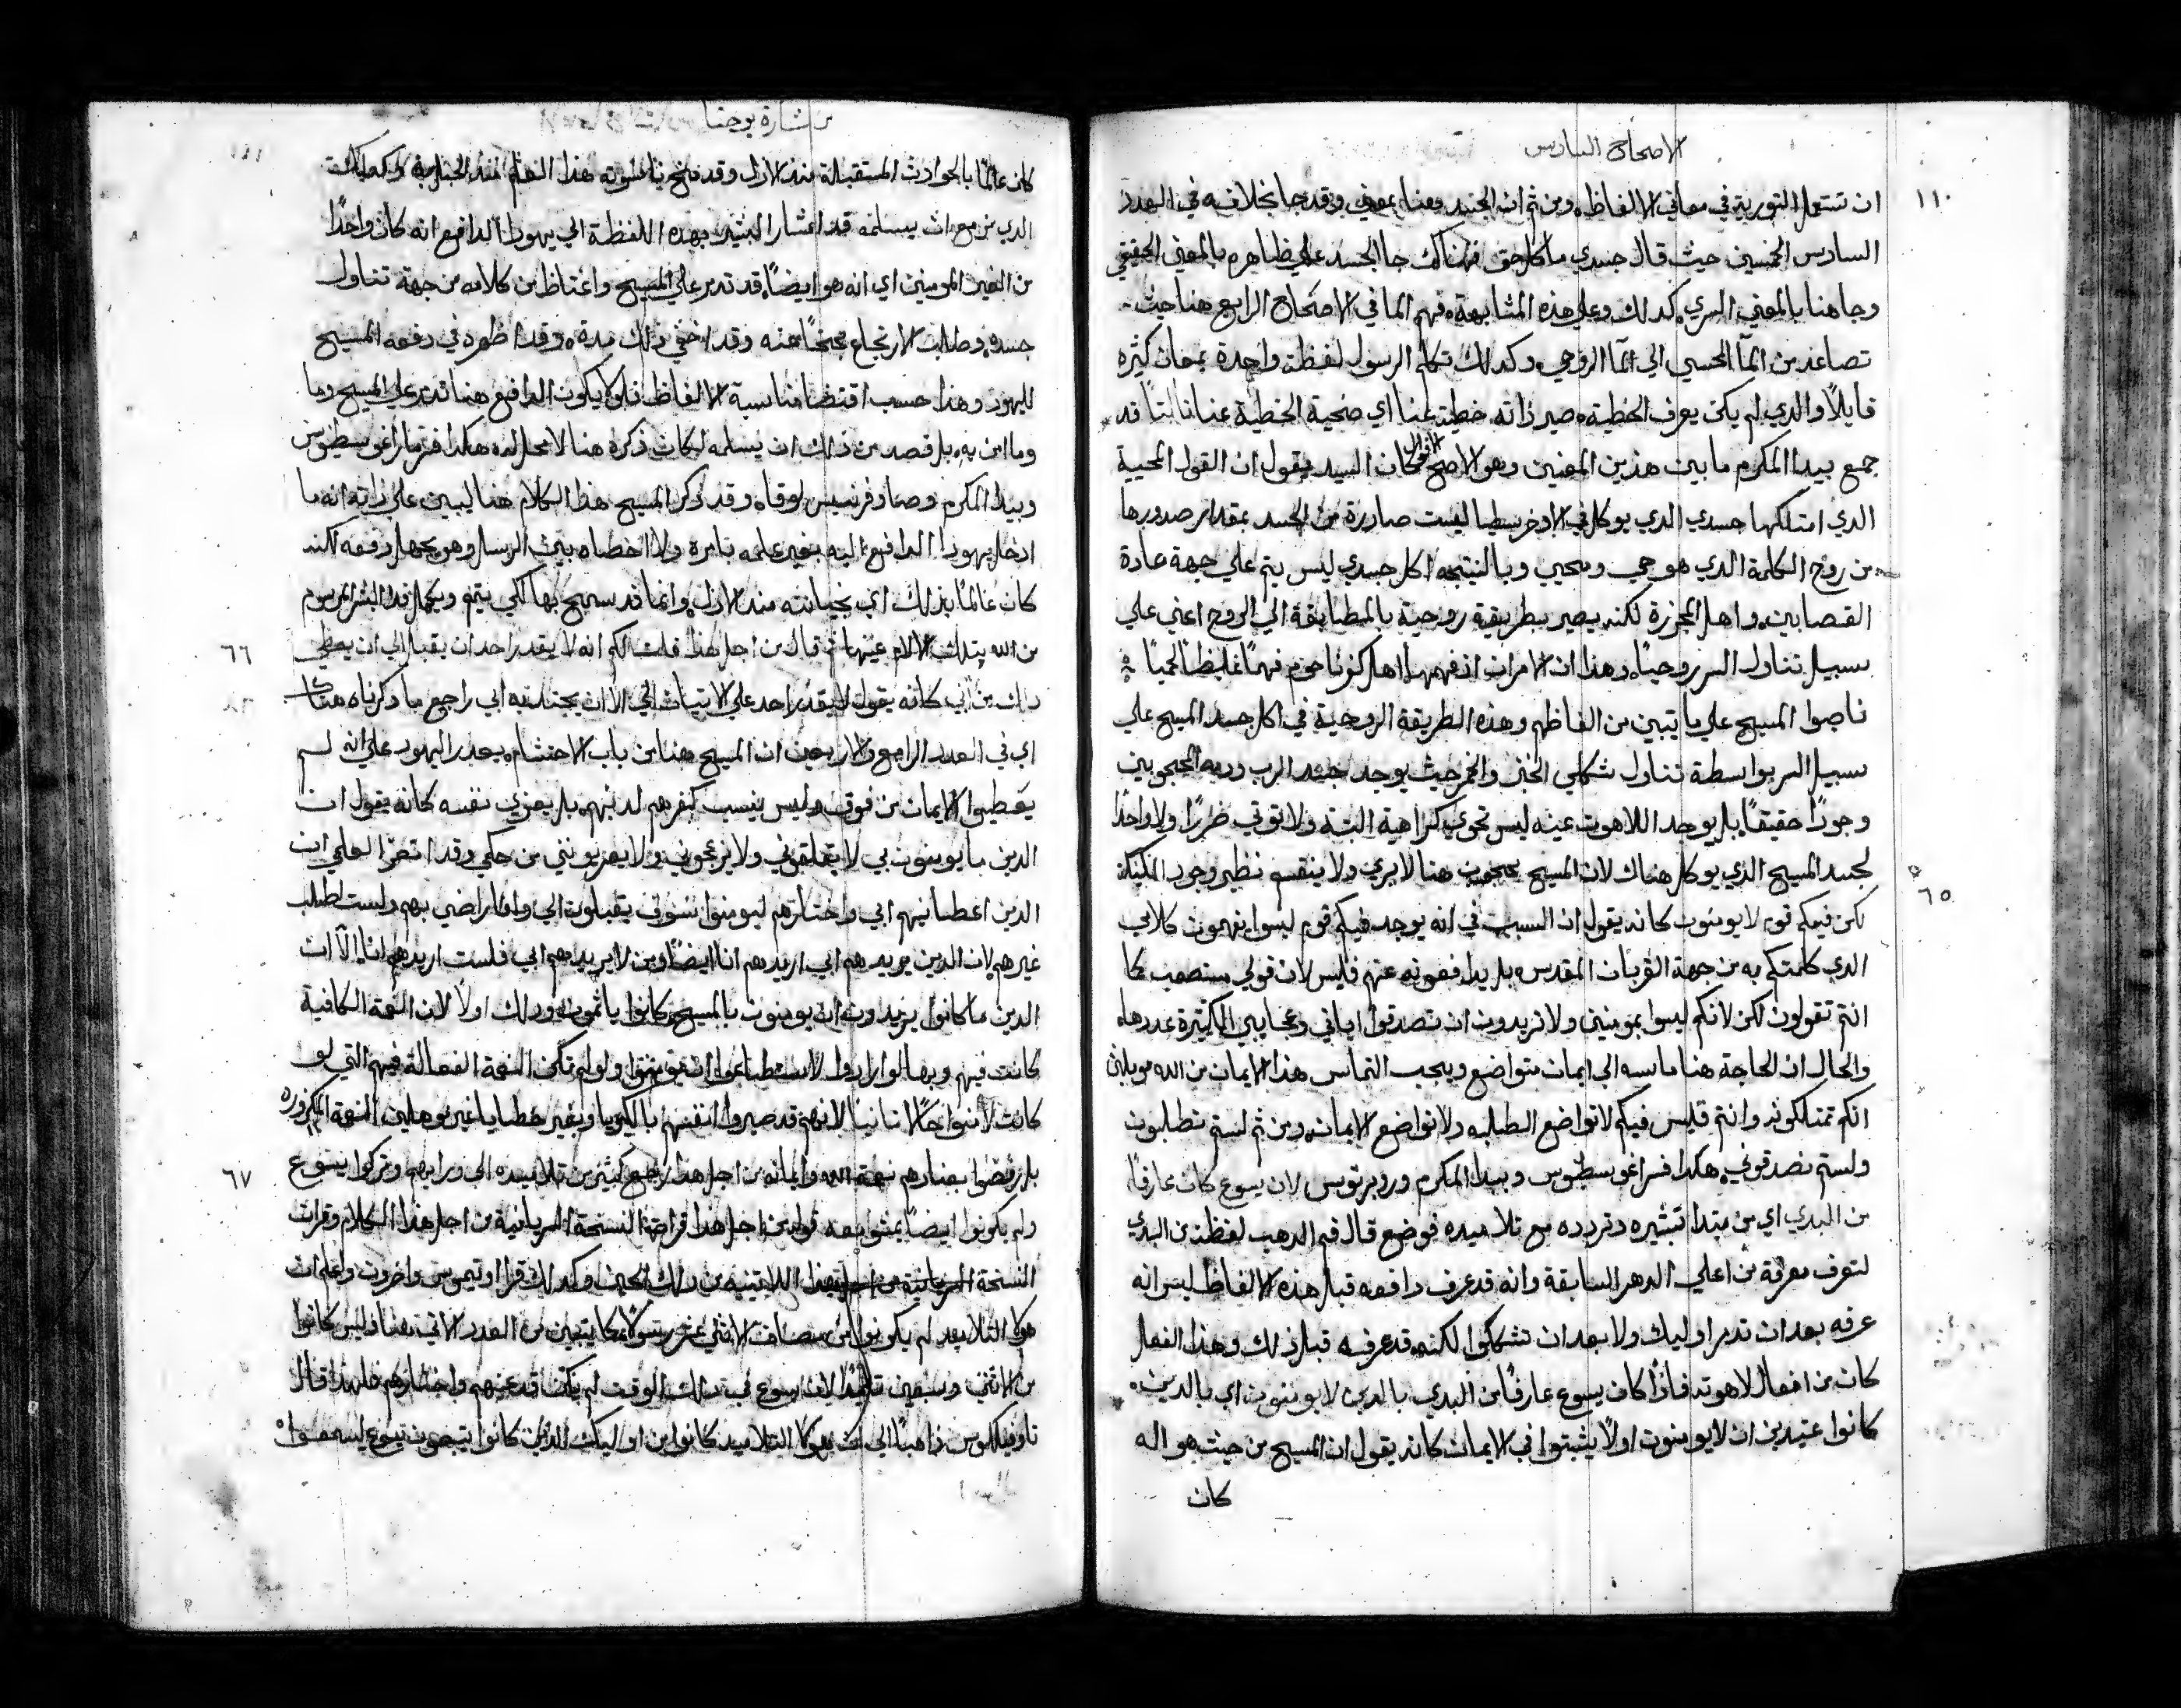 الاصحاح السادس
١١٠
ان تستعمل التورية في معاني الالفاظ، ومن ثم ان الجسد هنا بمعني وقد جا بخلافه في العدد
السادس الخمسين حيث قال جسدي ماكل حق فهناك جا الجسد علي ظاهره بالمعني الحقيقي
وجا هنا بالمعني السري كدلك وعلي هذه المشابهة، فهم الما في الاصحاح الرابع هنا حيث
تصاعد من المآ الحسي الي المآ الروحي وكدلك تكلم الرسول لفظة واحدة بمعان كثيره
قايلاً والدي لم يكن يعرف الخطية، صير ذاته خطية عنا اي ضحية الخطية عنا ثالثا قد
جمع بيدا المكرم ما بين هذين المعنيين وهو الاصح الاقوال كان السيد يقول ان القول المحيية
الدي امتلكها جسدي الدي يوكل في الاوخرسطيا ليست صادرة من الجسد بمقدار صدورها
من روح الكلمة الدي هو حي ومحيي وبالنتيجه اكل جسدي ليس يتم علي جهة عادة
القصابين، واهل المجزرة لكنه يصير بطريقة روحية بالمطابقة الي الروح اعني علي
سبيل تناول السر روحيًا، وهذا ان الامر ان اد فهمها اهل كفرناحوم فهمًا غليظًا لحميًا
ناصبوا المسيح علي ما يتبين من الفاظهم وهذه الطريقة الروحية في اكل جسد المسيح علي
سبيل السر بواسطة تناول شكلي الخبز والخمر حيث يوجد جسد الرب ودمه المحجوبين
وجودًا حقيقًا، بل يوجد اللاهوت عينه ليس تحوي كراهية البتة ولا توتي ضررًا ولا واحدًا
لجسد المسيح الدي يوكل هناك لان المسيح محجوب هنا لا يري ولا ينقسم نظير وجود الملايكة
٦٥
لكن فيكم قوم لا يومنون كانه يقول ان السبب في انه يوجد فيكم قوم ليسوا يفهمون كلامي
الدي كلمتكم به من جهة القربان المقدس، بل يدافعونه عنهم فليس لان قولي مستصعب كما
انتم تقولون لكن لانكم ليسوا بمومنين ولا تريدون ان تصدقوا اياتي وعجايبي الكتيرة عددها،
والحال ان الحاجة هنا ماسه الي ايمان متواضع ويجب التماس هذا الايمان من الله
انكم تمتلكونه وانتم فليس فيكم لا تواضع الطلبه ولا تواضع الايمان، ومن ثم لستم تطلبون
ولستم تصدقوني، هكدا فسر اغوسطينوس وبيدا المكرم وروبرتوس لان يسوع كان عارفًا
من البدي اي من مبتدا تبشيره وتردده مع تلاميده فوضع قال فم الدهب لفظة من البدي
لتعرف معرفة من اعلي الدهر السابقة وانه قد عرف دافعه قبل هذه الالفاظ ليس انه
عرفه بعد ان تدمر اوليك ولا بعد ان تشككوا لكنه، قد عرفه قبل ذلك وهذا الفعل
كان من افعال لاهوته فاذًا كان يسوع عارفًا من البدي بالدين لا يومنون اي بالدين
كانوا عتيدين ان لا يومنون اولا يثبتوا في الايمان كانه يقول ان المسيح من حيث هو اله
كان
من بشارة يوحنا
١١١
كان عالمًا بالحوادث المستقبلة مند الازل وقد منح ناسوته هذا العلم مند الحبل به
الدي مزمع ان يسلمه قد اشار البشير بهده اللفظة الي يهودا الدافع انه كان واحدًا
من الغير المومنين اي انه هو ايضًا، قد تدمر علي المسيح واغتاظ من كلامه من جهة تناول
جسده، وطلب الارتجاع عنه وقد اخفي ذلك مدة، وقد اظهره في دفعه المسيح
لليهود وهذا حسب اقتضا مناسبة الالفاظ فلولا يكون الدافع هنا تدمر علي المسيح وما
وما امن به، بل قصد من ذلك ان يسلمه لكان ذكره هنا لا محل له، هكدا فسر مار اغوسطينوس
وبيدا المكرم وصما وفرنسيس لوقا، وقد ذكر المسيح هذا الكلام هنا ليبين علي ذاته انه ما
ادخل يهودا الدافع اليه بغير علمه بامره ولا احصاه بين الرسل وهو يجهل دفعه لكنه
كان عالمًا بذلك اي بخيانته مند الازل، وانما قد سمح بها لكي يتم ويكمل فدا البشر المرسوم
٦٦
من الله بتلك الالام عينها ثم قال من اجل هذا قلت لكم انه لا يقدر احد ان يقبل الي ان يعطي
ذلك من ابي كانه يقول لا يقدر احد علي الاتيان الي الا ان يجتدبه ابي راجع ما ذكرناه هناك
اي في العدد الرابع والاربعين ان المسيح هنا من باب الاحتشام، يعدر اليهود علي انه لم
يعطيوا الايمان من فوق، وليس ينسب كفرهم لدنبهم، بل يعزي نفسه كانه يقول ان
الدين ما يومنون بي لا يقلقوني ولا يزعجوني ولا يهزبونني من حكي وقد اتضح العلم ان
الدين اعطانيهم ابي واختارهم ليومنوا بي سوف يقبلون الي، وانا راضي بهم ولست اطلب
غيرهم، لان الدين يريدهم ابي اريدهم انا ايضًا، ومن لا يريدهم ابي فلست اريدهم انا، الا ان
الدين ما كانوا يريدون ان يومنون بالمسيح، كانوا ياثمون، ودلك اولًا لان النعمة الكافية
كانت فيهم وبها لو ارادوا لاستطاعوا ان يومنوا ولو لم تكن النعمة الفعالة فيهم التي لو
كانت لامنوا حالًا ثانيًا لانهم قد صيروا انفسهم بالكبريا وبغير خطايا غير موهلين النعمة المذكورة
٦٧
بل رفضوا بعنادهم نعمة الله وايمانه من اجل هذا رجع كثير من تلاميده الي ورايهم وتركوا يسوع
ولم يكونوا ايضًا يمشوا معه قوله من اجل هذا قراة النسخة السريانية من اجل هذا الكلام وقرات
النسخة اللاتينيه من دلك الحين وكدلك قرا اوتيميوس واخرون واعلم ان
هولا التلاميد لم يكونوا من مصاف الاثني عشر رسولًا، كما يتبين من العدد الاتي هنا، وليس كانوا
من الاثني وسبعين تلميذًا لان يسوع في دلك الوقت لم يكن قد عينهم واختارهم فلهذا قال
تاوفيلكتوس ذاهبًا الي ان هولا التلاميد كانوا من اوليك الدين كانوا يتبعون يسوع ليسمعوا